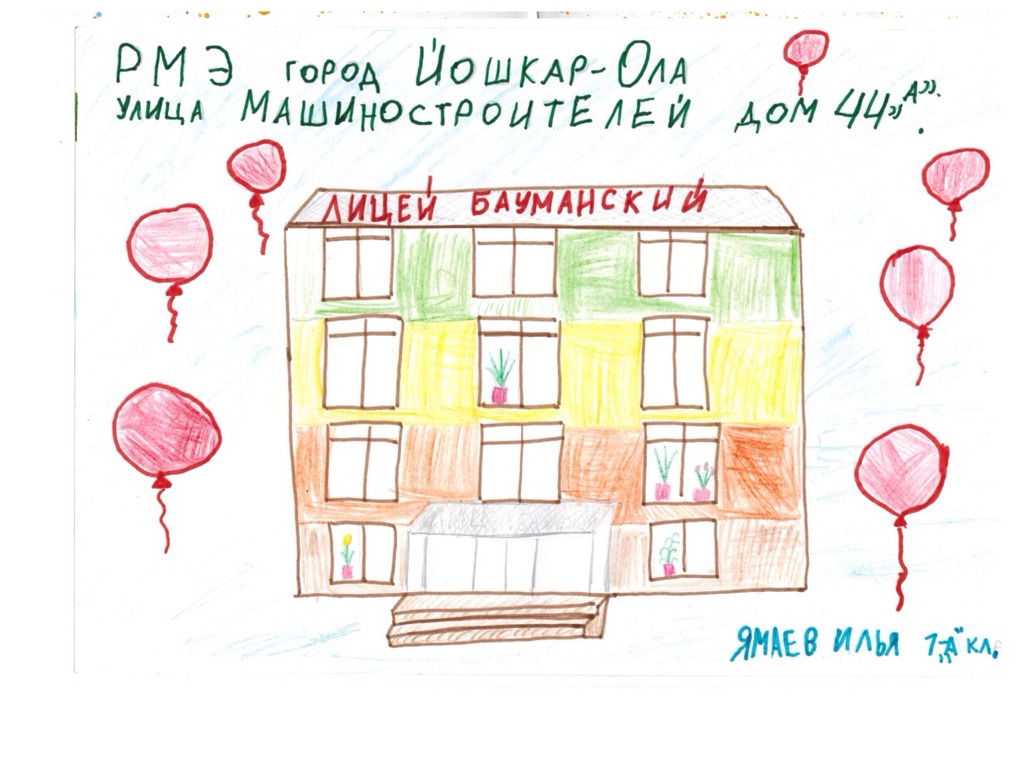 РМЭ город Йошкар-Ола
улица Машиностроителей дом 44 „А”.
ЛИЦЕЙ БАУМАНСКИЙ
ЯМАЕВ ИЛЬЯ 1 „А“ кл.